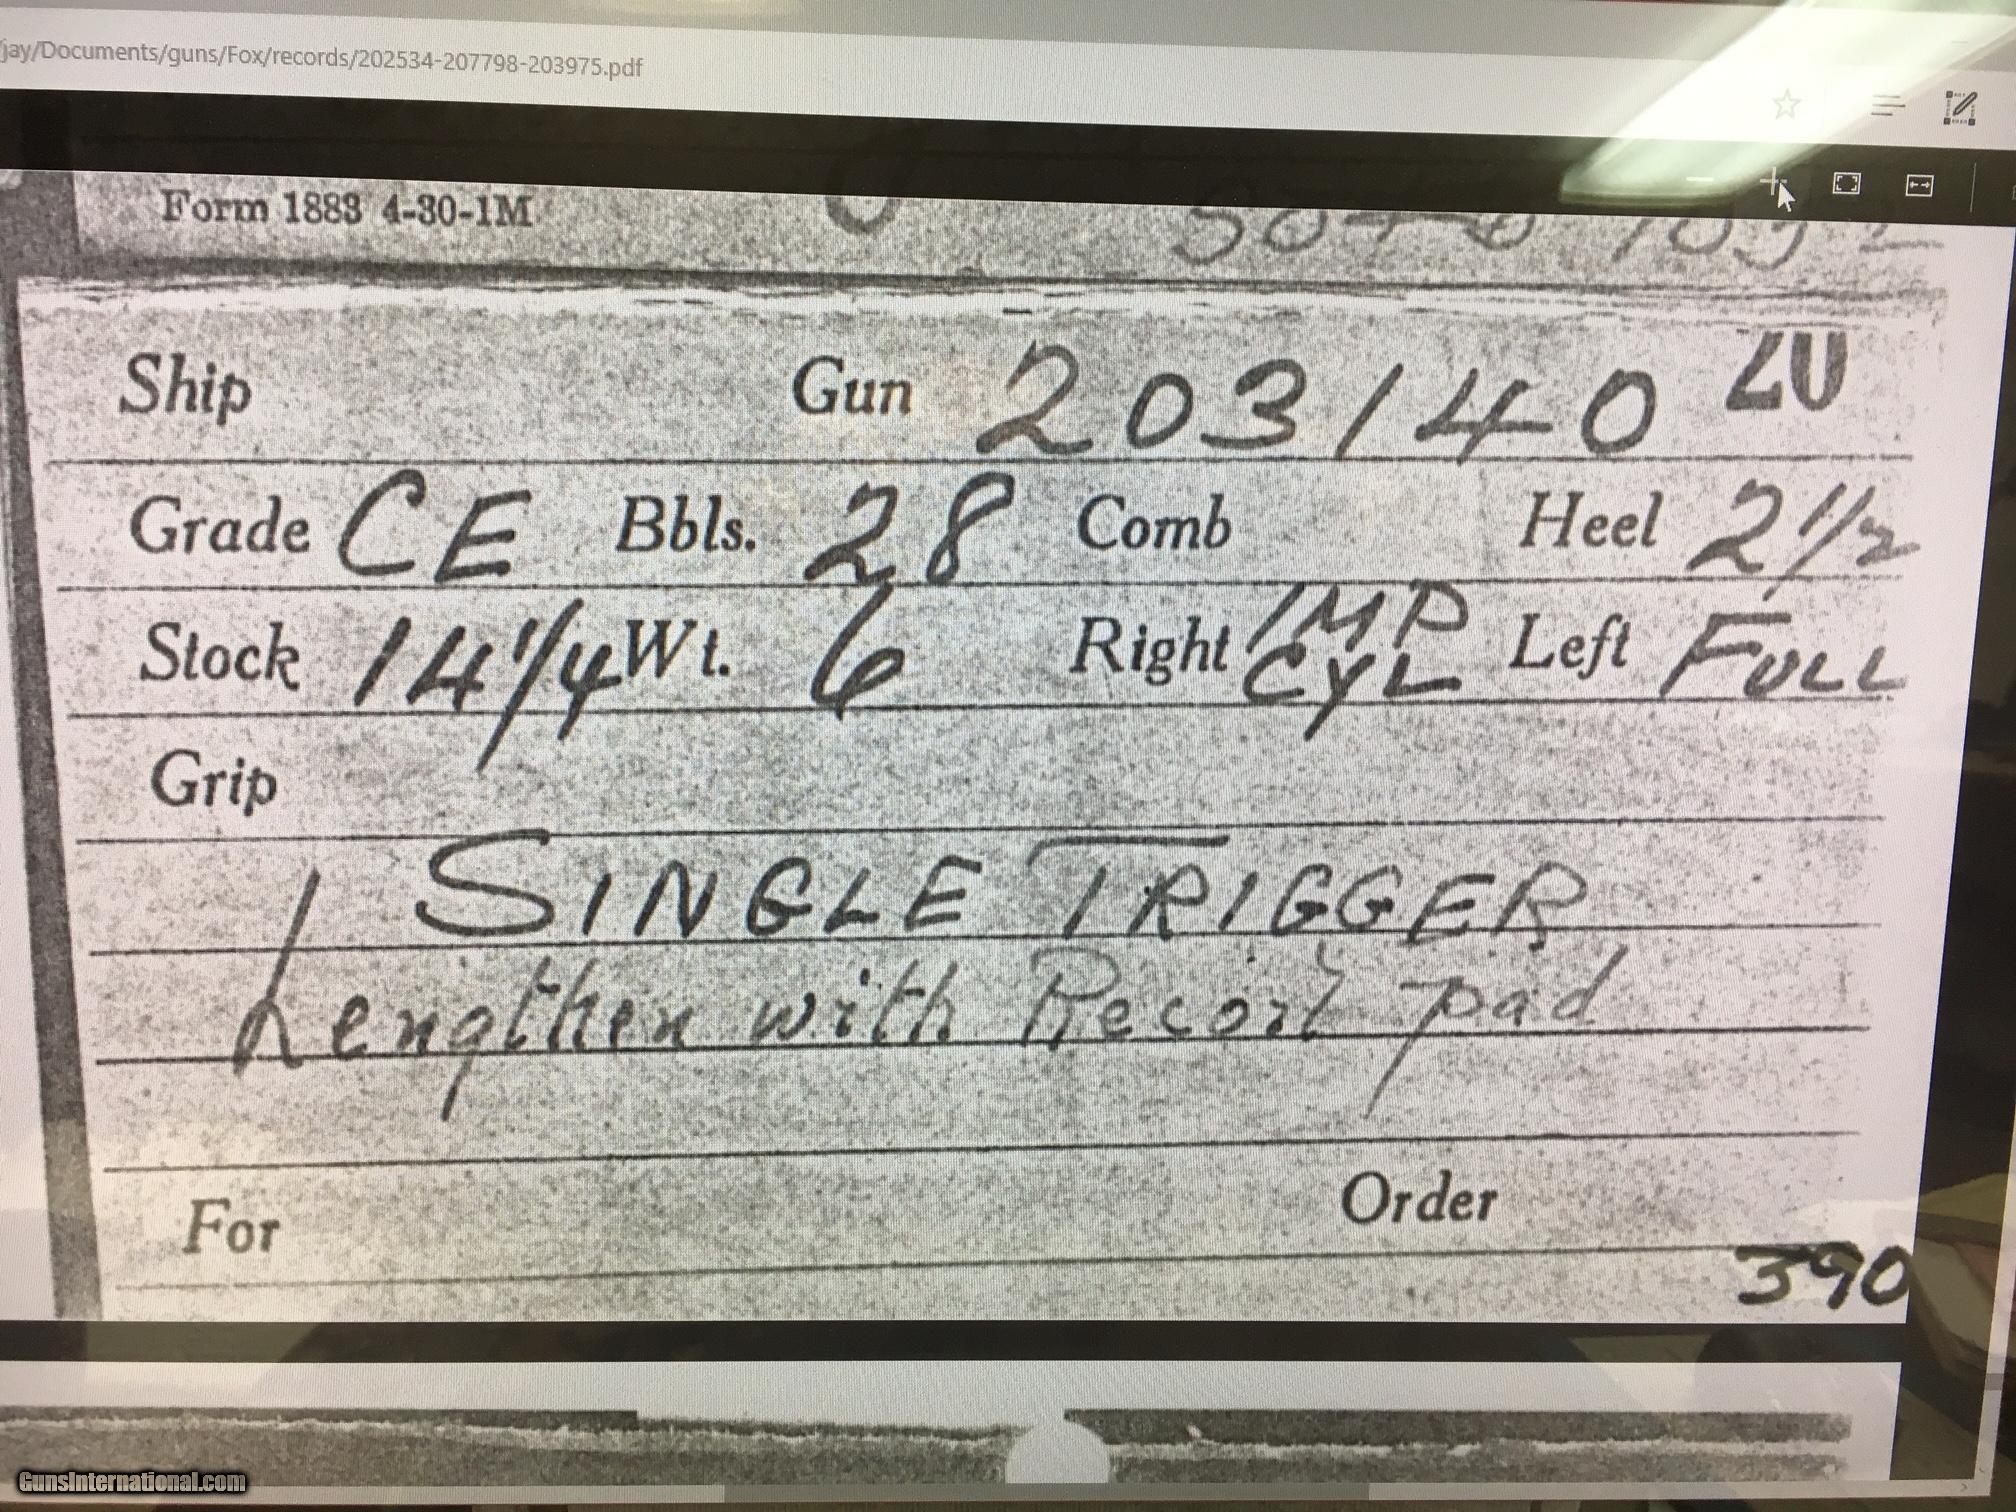 jay/Documents/guns/Fox/records/202534-207798-203975.pdf
Form 1883 4-30-1M
Ship Gun 203140 20
Grade CE Bbls. 28 Comb Heel 2 1/2
Stock 14 1/4 Wt. 6 Right IMP CYL Left FULL
Grip
SINGLE TRIGGER
Lengthen with Recoil pad
For Order
390
GunsInternational.com